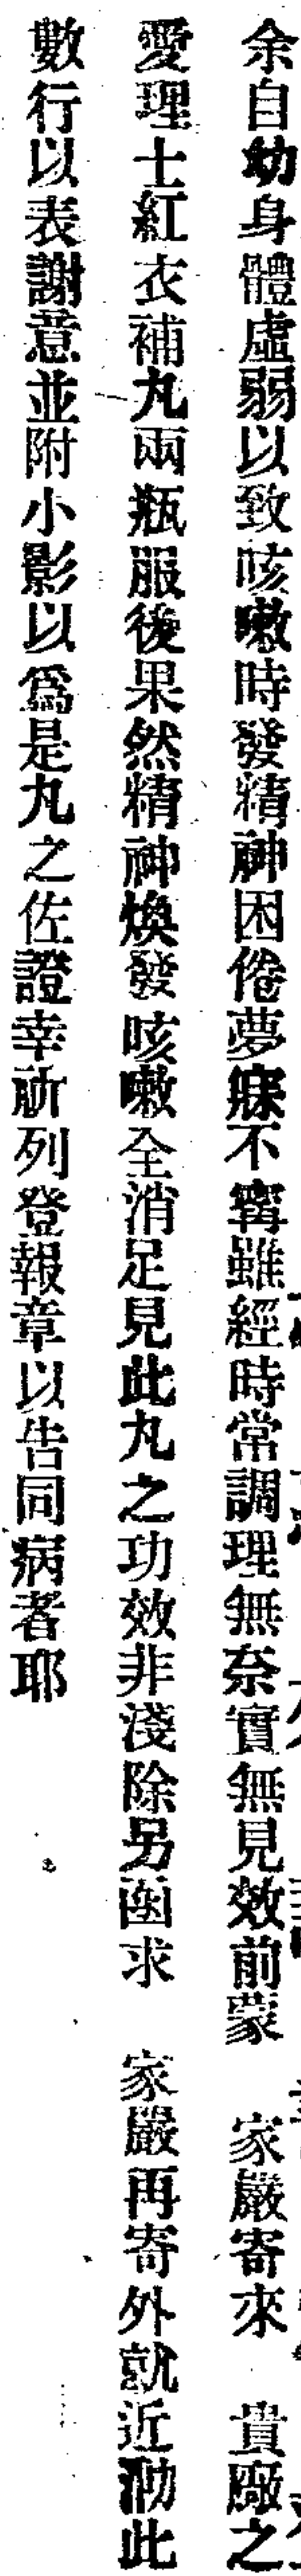 余自幼身體虛弱以致咳嗽時發精神困倦夢寐不寧雖經時常調理無奈實無見效前蒙　家嚴寄來　貴廠之
愛理士紅衣補丸兩瓶服後果然精神煥發咳嗽全消足見此丸之功效非淺除另函求　家嚴再寄外就近泐此
數行以表謝意並附小影以爲是丸之佐證幸祈列登報章以告同病者耶